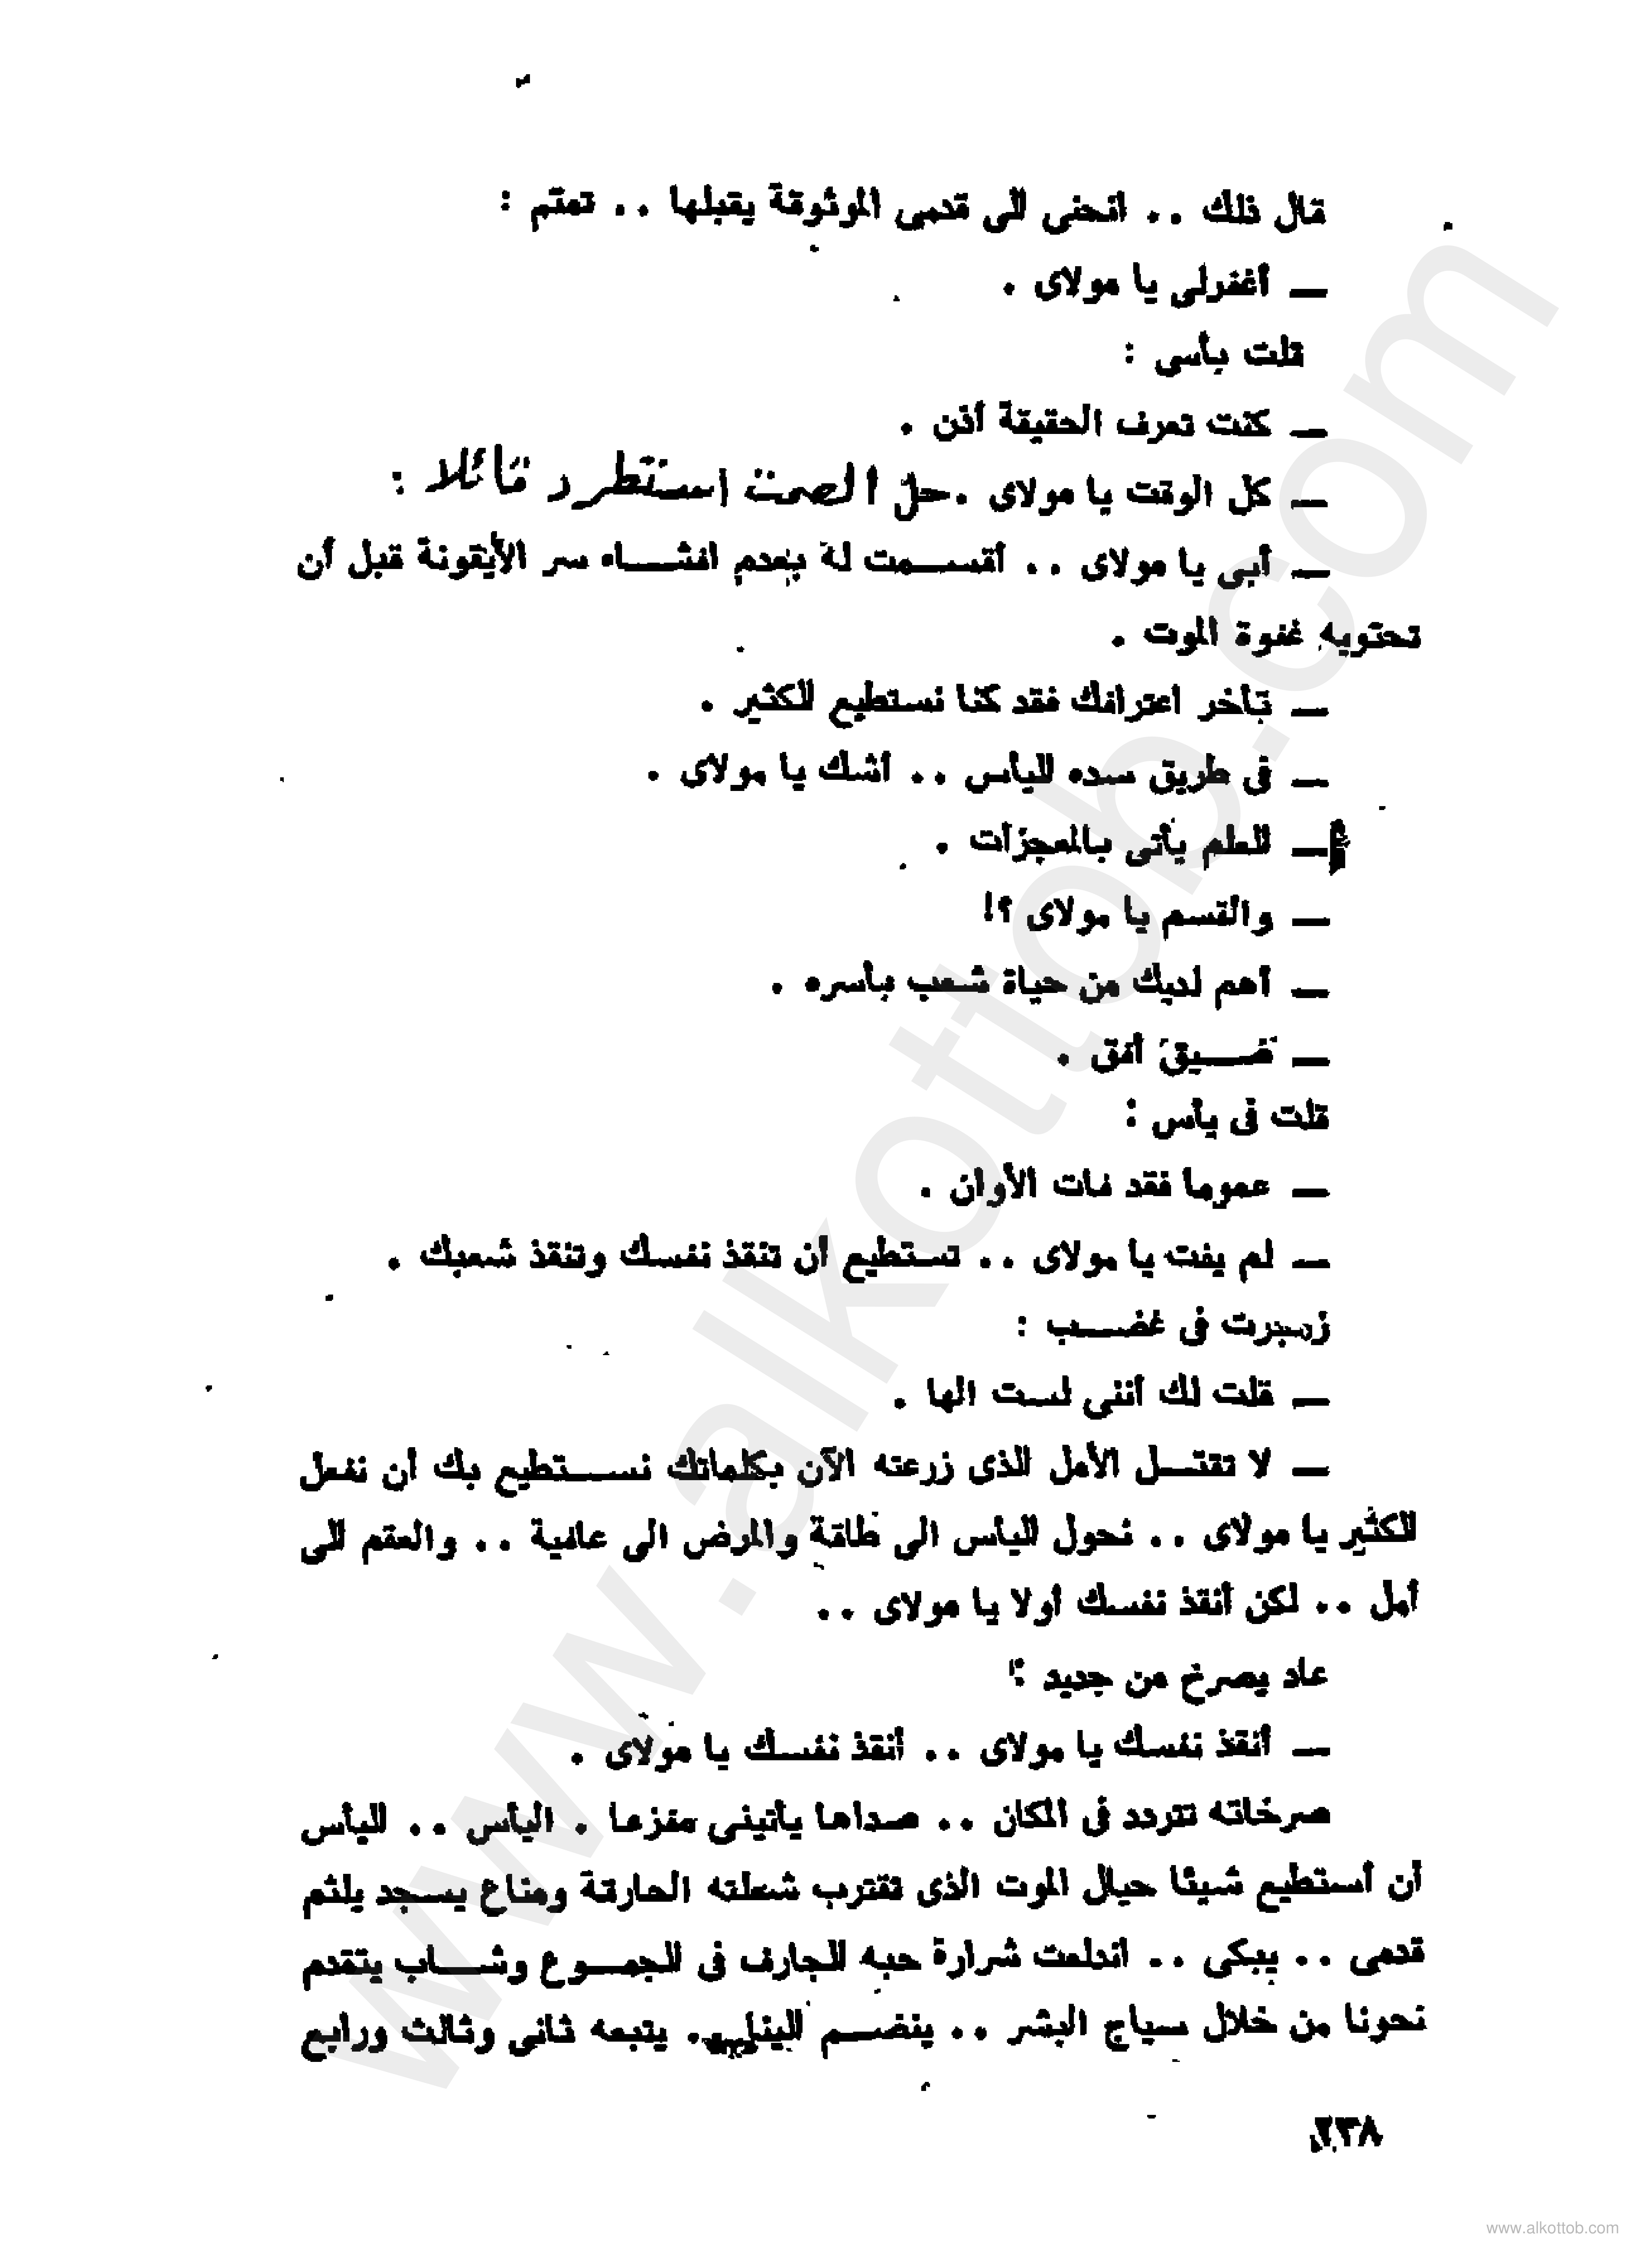 قال ذلك .. انحنى الى قدمى الموثوقة يقبلها .. تمتم :
— أغفرلى يا مولاى .
قلت بأسى :
— كنت تعرف الحقيقة أذن .
— كل الوقت يا مولاى . حل الصمت استطرد قائلا :
— أبى يا مولاى .. أقسمت له بعدم افشاء سر الأيقونة قبل أن
تحتويه غفوة الموت .
— تأخر اعترافك فقد كنا نستطيع الكثير .
— فى طريق سده اليأس .. أشك يا مولاى .
— العلم يأتى بالمعجزات .
— والقسم يا مولاى ؟!
— أهم لديك من حياة شعب بأسره .
— ضيق أفق .
قلت فى يأس :
— عموما فقد فات الأوان .
— لم يفت يا مولاى .. تستطيع ان تنقذ نفسك وتنقذ شعبك .
زمجرت فى غضب :
— قلت لك أننى لست الها .
— لا تقتل الأمل الذى زرعته الآن بكلماتك نستطيع بك أن نفعل
الكثير يا مولاى .. نحول اليأس الى طاقة والمرض الى عافية .. والعقم الى
أمل .. لكن أنقذ نفسك أولا يا مولاى ..
عاد يصرخ من جديد :
— أنقذ نفسك يا مولاى .. أنقذ نفسك يا مولاى .
صرخاته تتردد فى المكان .. صداها يأتينى مفزعا . اليأس .. اليأس
أن أستطيع شيئا حيال الموت الذى تقترب شعلته الحارقة ومناع يسجد يلثم
قدمى .. يبكى .. اندلعت شرارة حبه الجارف فى الجموع وشاب يتقدم
نحونا من خلال سياج البشر .. ينضم الينا .. يتبعه ثانى وثالث ورابع
٢٣٨
www.alkottob.com
www.alkottob.com